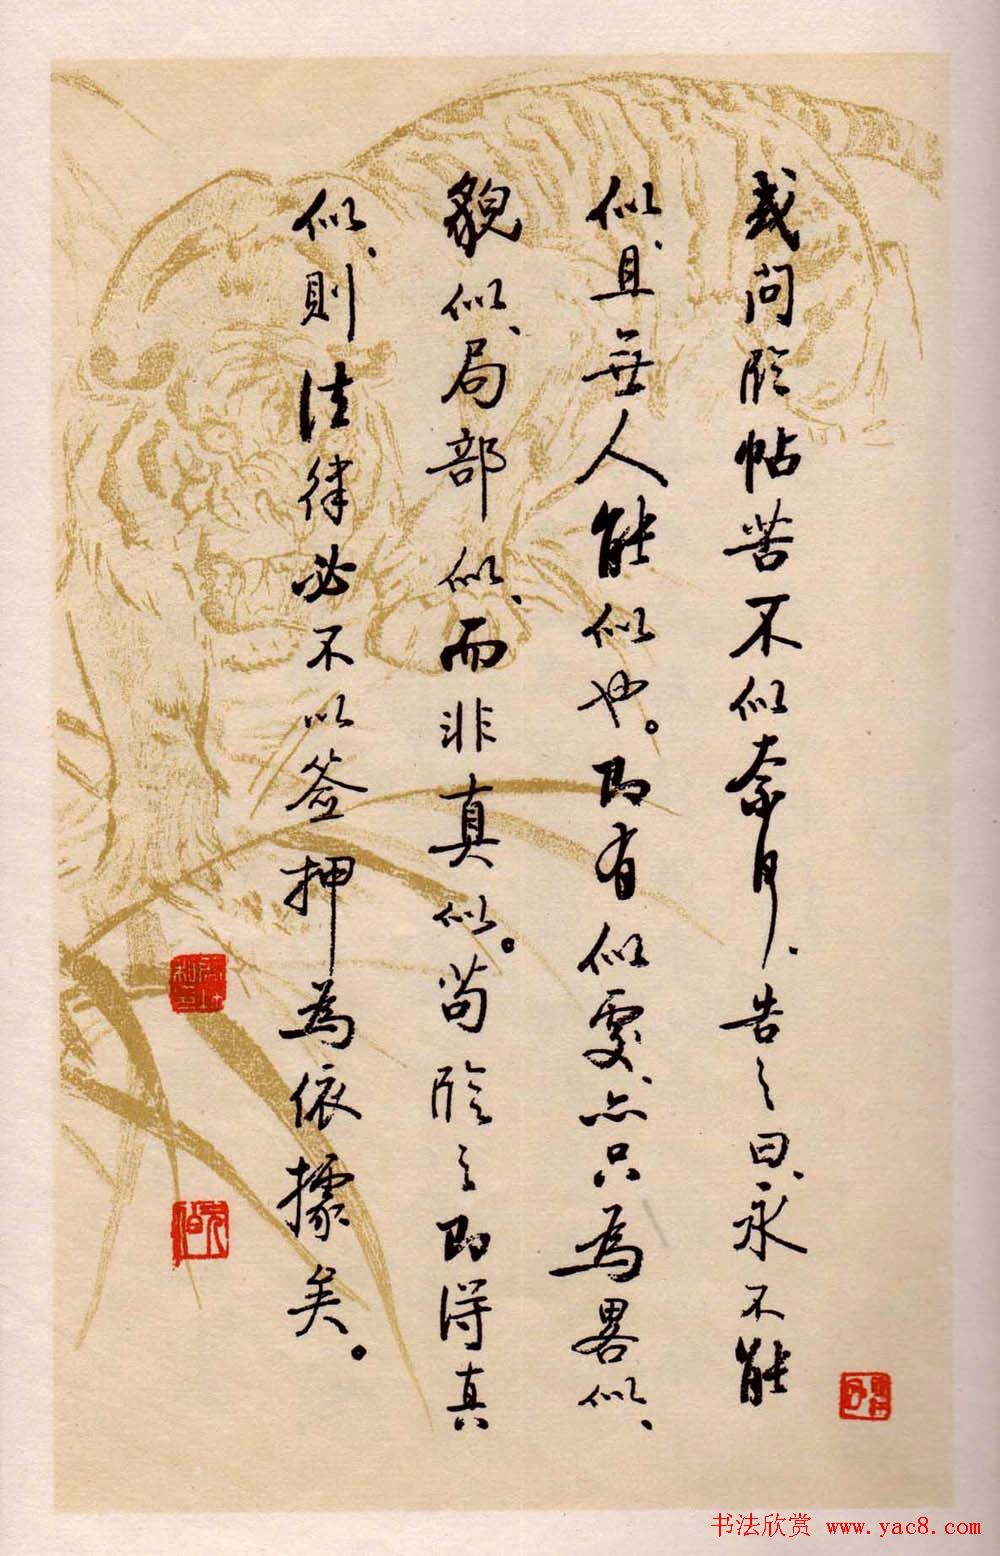 或问临帖苦不似奈何、告之曰、永不能
似、且無人能似也。即有似處、亦只為畧似、
貌似、局部似、而非真似。苟临之即得真
似、則法律必不以签押為依據矣。
书法欣赏 www.yac8.com